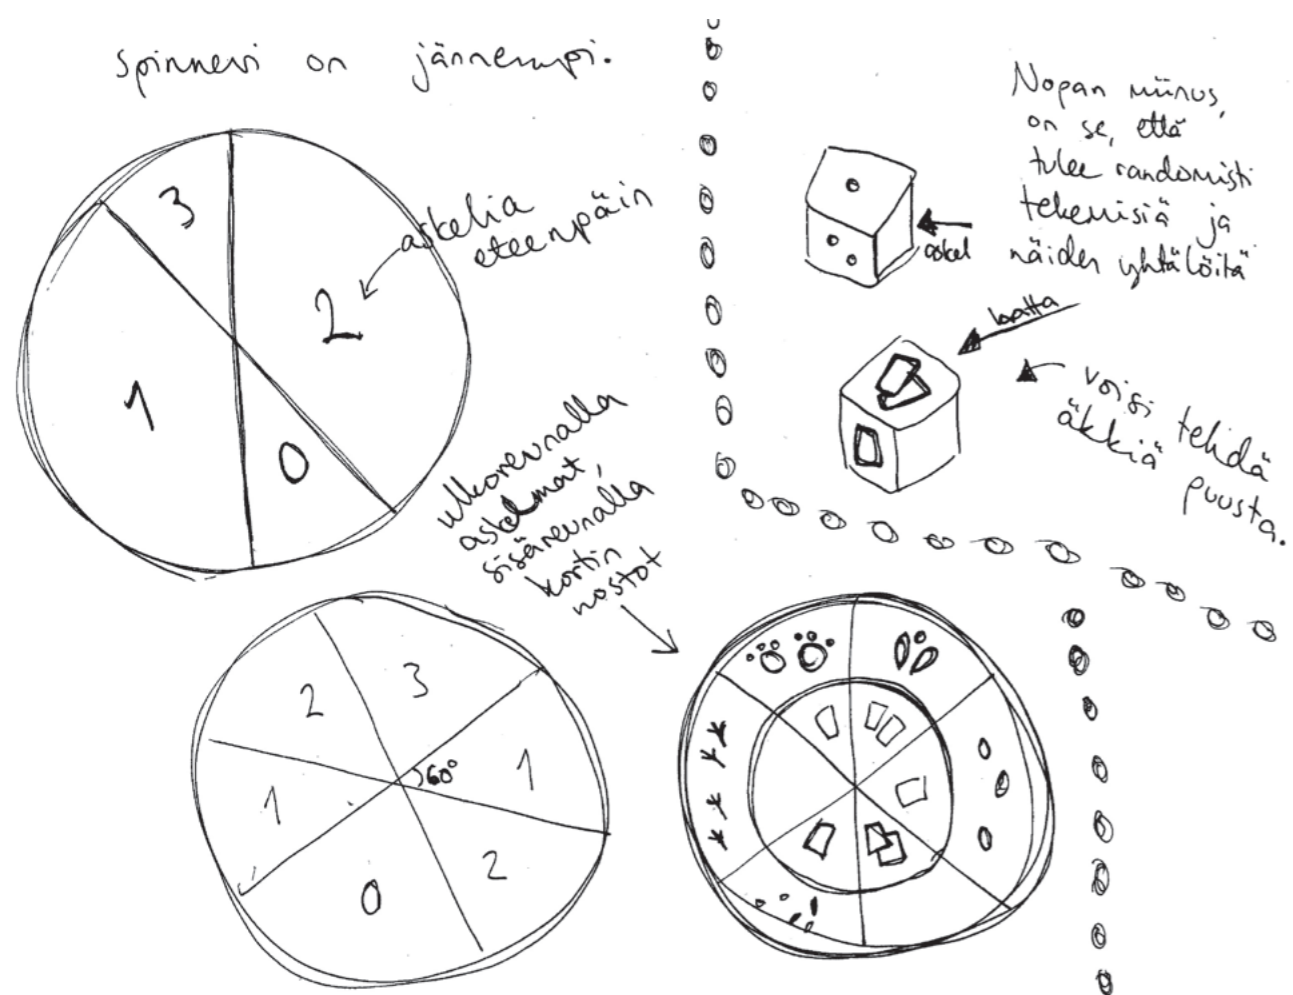 Spinneri on jännempi.
3
askelia
eteenpäin
2
1
0
Nopan miinus
on se, että
tulee randomisti
tekemisiä ja
näiden yhtälöitä
askel
laatta
voisi tehdä
äkkiä puusta.
ulkoreunalla
askelmat,
sisäreunalla
kortin
nostot
2
3
1
60°
1
0
2